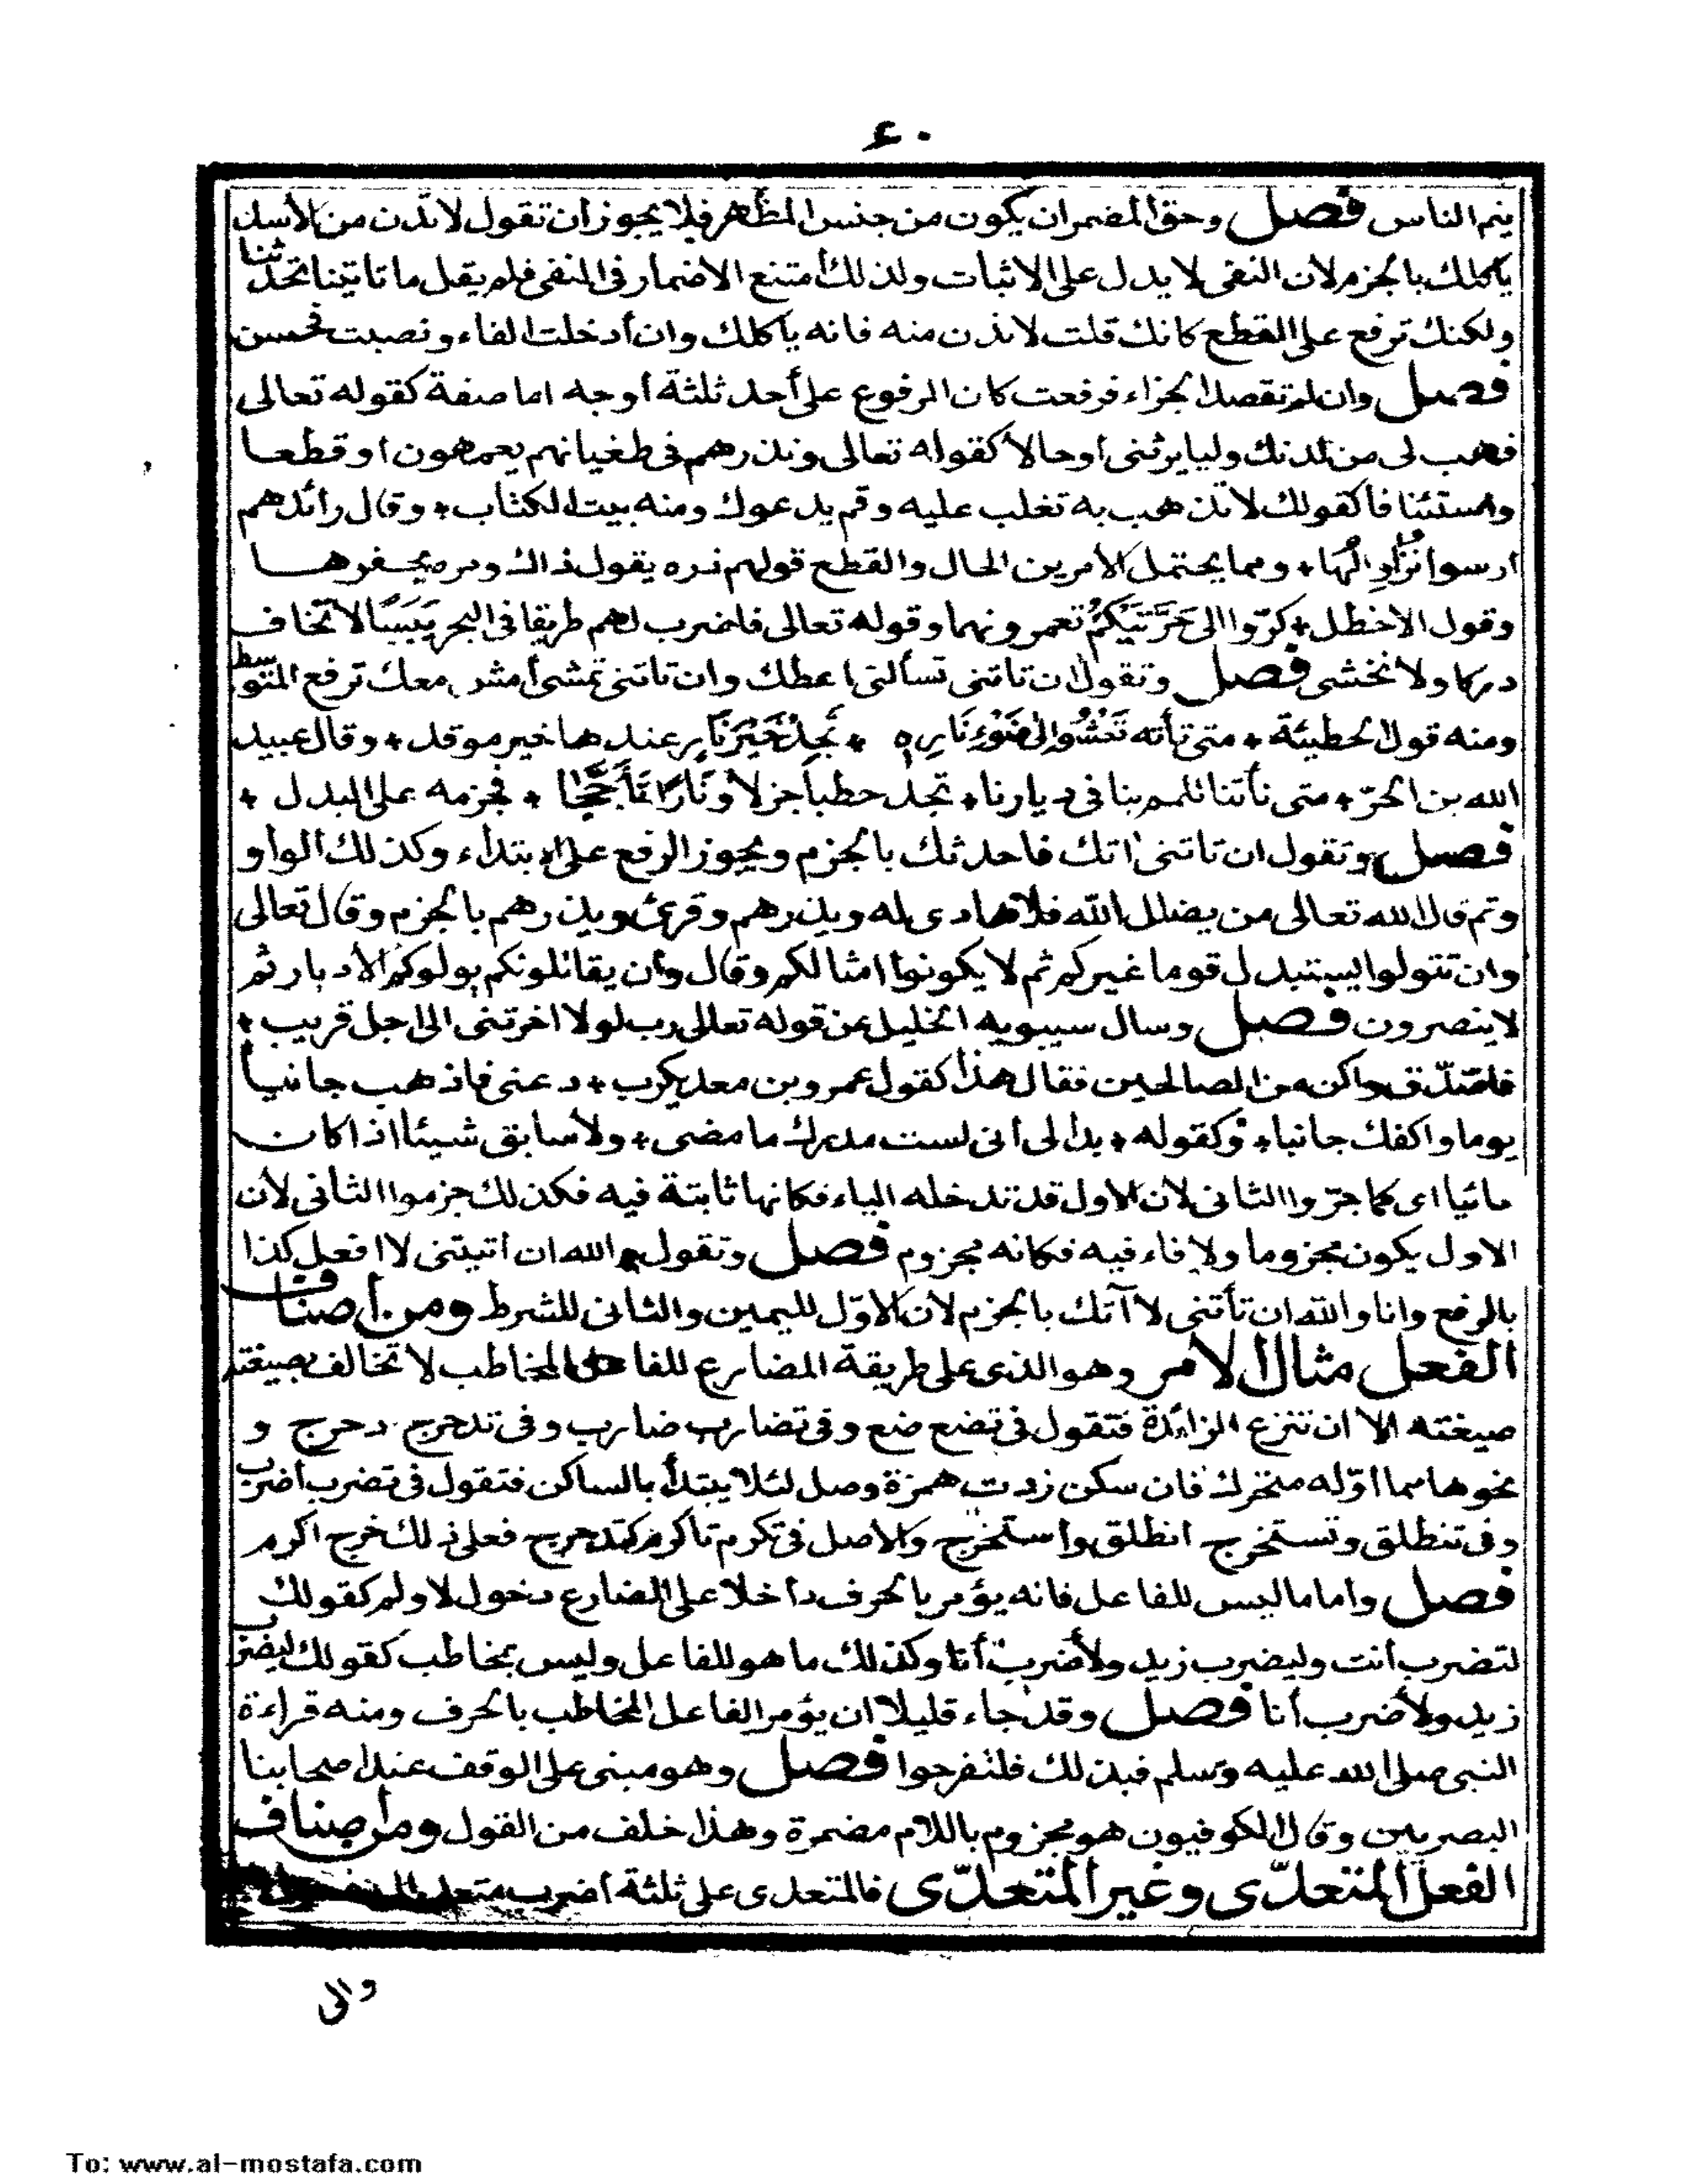 ٤٠
ينم الناس فصل وحق المضمر ان يكون من جنس المظهر فلا يجوز ان تقول لا تدن من الأسد
يأكلك بالجزم لأن النفى لا يدل على الاثبات ولذلك امتنع الاضمار فى المنفى فلم يقل ما تاتينا تحدثنا
ولكنك ترفع على القطع كانك قلت لا تدن منه فانه يأكلك وان أدخلت الفاء ونصبت فحسن
فصل وان لم تقصد الجزاء فرفعت كان المرفوع على أحد ثلثة أوجه اما صفة كقوله تعالى
فهب لى من لدنك وليا يرثنى اوحالا كقوله تعالى ونذرهم فى طغيانهم يعمهون او قطعا
واستئنافا كقولك لا تذهب به تغلب عليه وقم يدعوك ومنه بيت الكتاب * وقال رائدهم
ارسوا نزاولها * ومما يحتمل الأمرين الحال والقطع قولهم ذره يقول ذاك ومره يحفرها
وقول الاخطل * كرّوا الى حَرَّتَيْكُمْ تعمرونهما وقوله تعالى فاضرب لهم طريقا فى البحر يَبَسًا لا تخاف
دركا ولا تخشى فصل وتقول ان تاتنى تسألنى اعطك وان تاتنى تمشى أمش معك ترفع المتوسط
ومنه قول الحطيئة * متى تأته تَعْشُو إلى ضَوْءِ نَارِهِ * تَجِدْ خَيْرَ نَارٍ عندها خير موقد * وقال عبيد
الله بن الحرّ * متى تأتنا تلمم بنا فى ديارنا * تجد حطبا جزلا ونَارًا تَأَجَّجَا * فجزمه على البدل *
فصل وتقول ان تاتنى اتك فاحدثك بالجزم ويجوز الرفع على الابتداء وكذلك الواو
وثم قال الله تعالى من يضلل الله فلا هادى له ويذرهم وقرئ ويذرهم بالجزم وقال تعالى
وان تتولوا يستبدل قوما غيركم ثم لا يكونوا امثالكم وقال وان يقاتلونكم يولوكم الأدبار ثم
لا ينصرون فصل وسال سيبويه الخليل عن قوله تعالى رب لولا اخرتنى الى اجل قريب *
فاصّدّق واكن من الصالحين فقال هذا كقول عمرو بن معديكرب * دعنى فاذهب جانبا
يوما واكفك جانبا * وكقوله * بدا لى أنى لست مدرك ما مضى * ولا سابق شيئا اذا كان
جائيا اى كما جرّوا الثانى لأن الأول قد تدخله الباء فكانها ثابتة فيه فكذلك جزموا الثانى لأن
الاول يكون مجزوما ولا فاء فيه فكانه مجزوم فصل وتقول والله ان اتيتنى لا افعل كذا
بالرفع وانا والله ان تأتنى لا آتك بالجزم لأن الاوّل لليمين والثانى للشرط ومن أصناف
الفعل مثال الامر وهو الذى على طريقة المضارع للفاعل المخاطب لا تخالف بصيغته
صيغته الا ان تنزع الزائدة فتقول فى تضع ضع وفى تضارب ضارب وفى تدحرج دحرج و
نحوها مما اوّله متحرك فان سكن زدت همزة وصل لئلا يبتدأ بالساكن فتقول فى تضرب اضرب
وفى تنطلق وتستخرج انطلق واستخرج والاصل فى تكرم تاكرم كتدحرج فعلى ذلك خرج اكرم
فصل واما ما ليس للفاعل فانه يؤمر بالحرف داخلا على المضارع دخول لا ولم كقولك
لتضرب أنت وليضرب زيد ولأضرب أنا وكذلك ما هو للفاعل وليس بمخاطب كقولك ليضرب
زيد ولأضرب أنا فصل وقد جاء قليلا ان يؤمر الفاعل المخاطب بالحرف ومنه قراءة
النبى صلى الله عليه وسلم فبذلك فلتفرحوا فصل وهو مبنى على الوقف عند اصحابنا
البصريين وقال الكوفيون هو مجزوم باللام مضمرة وهذا خلف من القول ومن أصناف
الفعل المتعدّى وغير المتعدّى فالمتعدى على ثلثة اضرب متعد
والى
To: www.al-mostafa.com